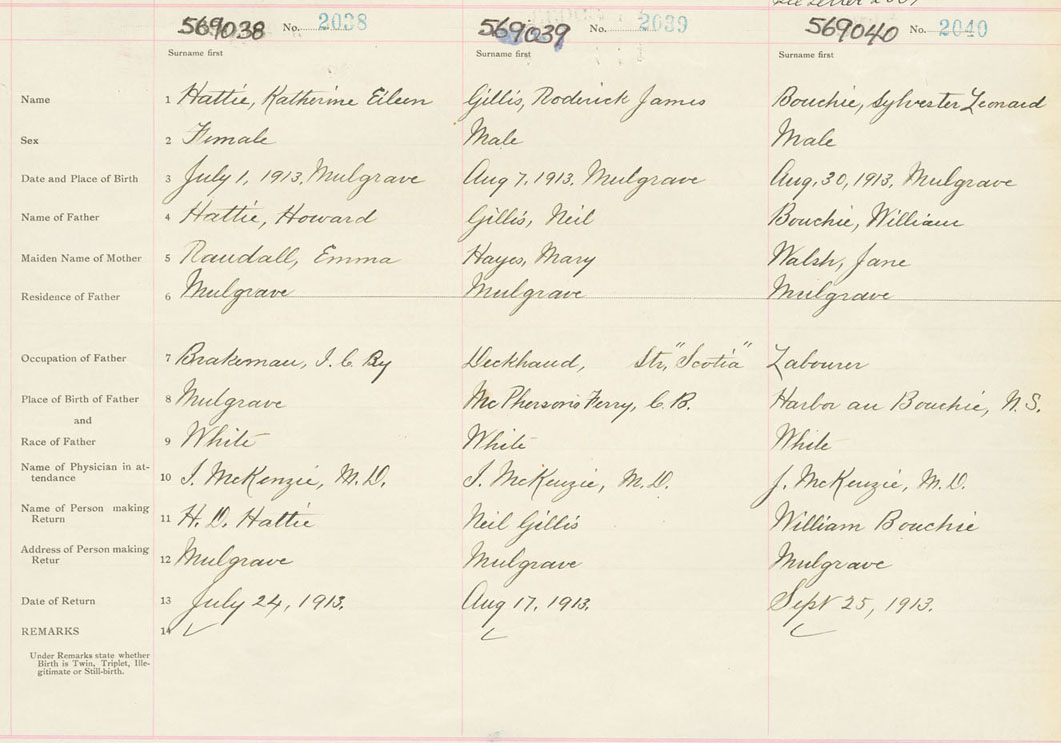 See Letter 2037
569038 No. 2038 569039 No. 2039 569040 No. 2040
Surname first Surname first Surname first
Name 1 Hattie, Katherine Eileen Gillis, Roderick James Bouchie, Sylvester Leonard
Sex 2 Female Male Male
Date and Place of Birth 3 July 1, 1913, Mulgrave Aug 7, 1913. Mulgrave Aug, 30, 1913, Mulgrave
Name of Father 4 Hattie, Howard Gillis, Neil Bouchie, William
Maiden Name of Mother 5 Randall, Emma Hayes, Mary Walsh, Jane
Residence of Father 6 Mulgrave Mulgrave Mulgrave
Occupation of Father 7 Brakeman, I. C. Ry Deckhand, Str, "Scotia" Labourer
Place of Birth of Father 8 Mulgrave McPherson's Ferry, C.B. Harbor au Bouchie, N.S.
and
Race of Father 9 White White White
Name of Physician in at-
tendance 10 J. McKenzie, M.D. J. McKenzie, M.D. J. McKenzie, M.D.
Name of Person making
Return 11 H. D. Hattie Neil Gillis William Bouchie
Address of Person making
Retur 12 Mulgrave Mulgrave Mulgrave
Date of Return 13 July 24, 1913. Aug 17, 1913. Sept 25, 1913.
REMARKS 14
Under Remarks state whether
Birth is Twin, Triplet, Ille-
gitimate or Still-birth.